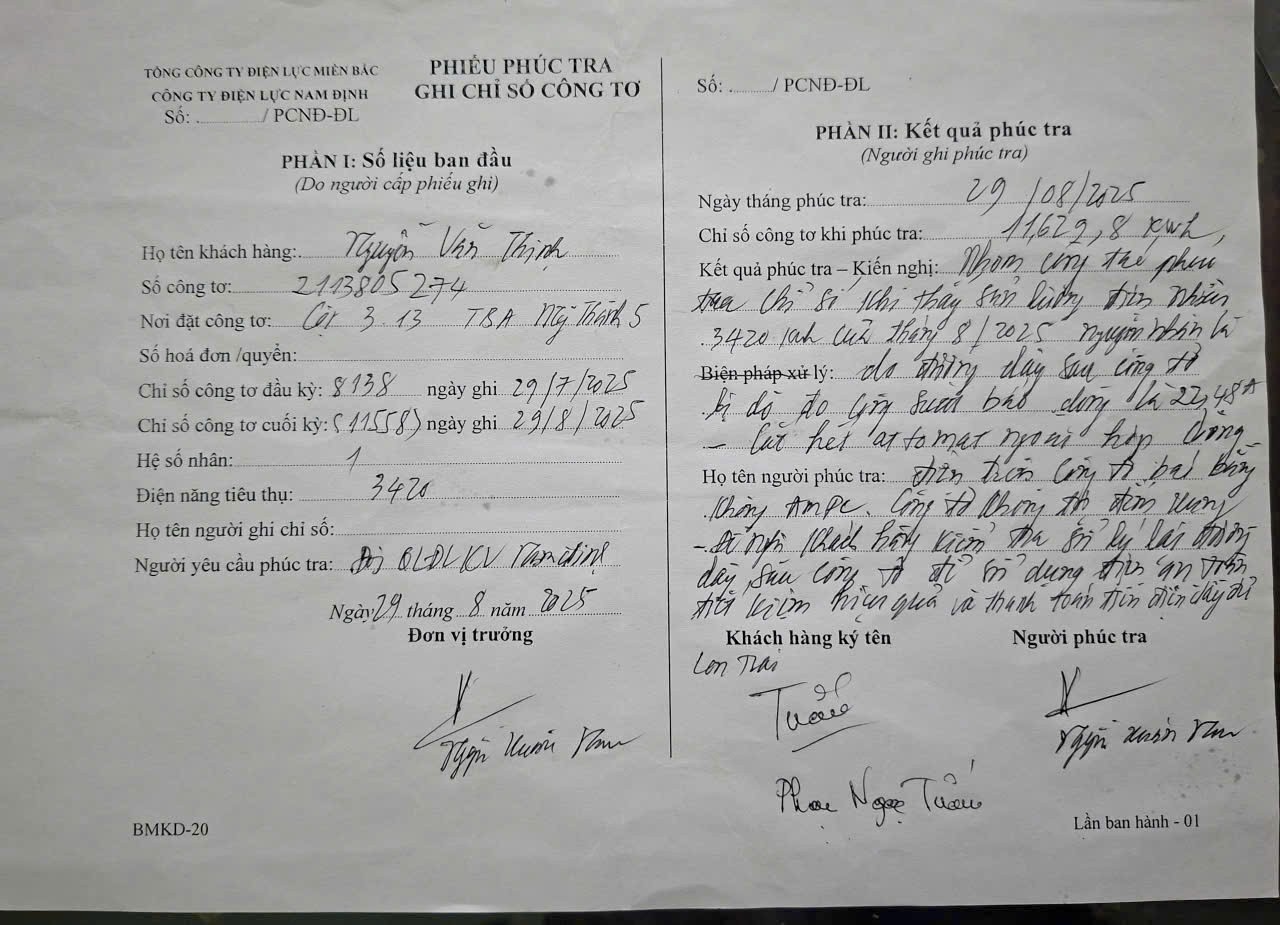 TỔNG CÔNG TY ĐIỆN LỰC MIỀN BẮC
CÔNG TY ĐIỆN LỰC NAM ĐỊNH
Số: ............/ PCNĐ-ĐL
PHIẾU PHÚC TRA
GHI CHỈ SỐ CÔNG TƠ
PHẦN I: Số liệu ban đầu
(Do người cấp phiếu ghi)
Họ tên khách hàng: Nguyễn Văn Thịnh
Số công tơ: 2113805274
Nơi đặt công tơ: Cột 3.13 TBA Mỹ Thành 5
Số hoá đơn /quyển:
Chỉ số công tơ đầu kỳ: 8138 ngày ghi 29/7/2025
Chỉ số công tơ cuối kỳ: (11558) ngày ghi 29/8/2025
Hệ số nhân: 1
Điện năng tiêu thụ: 3420
Họ tên người ghi chỉ số:
Người yêu cầu phúc tra: Đội QLĐLKV Nam định
Ngày 29 tháng 8 năm 2025
Đơn vị trưởng
Nguyễn Xuân
BMKD-20
Số: ........../ PCNĐ-ĐL
PHẦN II: Kết quả phúc tra
(Người ghi phúc tra)
Ngày tháng phúc tra: 29/08/2025
Chỉ số công tơ khi phúc tra: 11,629,8 kWh,
Kết quả phúc tra – Kiến nghị: Nhóm công tác phúc
tra chỉ số khi thấy sản lượng điện
3420 kwh của tháng 8/2025 nguyên nhân là
Biện pháp xử lý: do đường dây sau công tơ
bị dò đo công suất báo dòng là 22,48A
- Cắt hết attomat ngoài hộp dòng
Họ tên người phúc tra: điện trên công tơ báo bằng
không AmPe. Công tơ không
- Đề nghị khách hàng kiểm tra sử lý lại đường
dây sau công tơ để sử dụng điện an toàn
tiết kiệm hiệu quả và thanh toán tiền điện đầy đủ
Khách hàng ký tên
Con Trai
Tuấn
Phạm Ngọc Tuấn
Người phúc tra
Nguyễn Xuân
Lần ban hành - 01